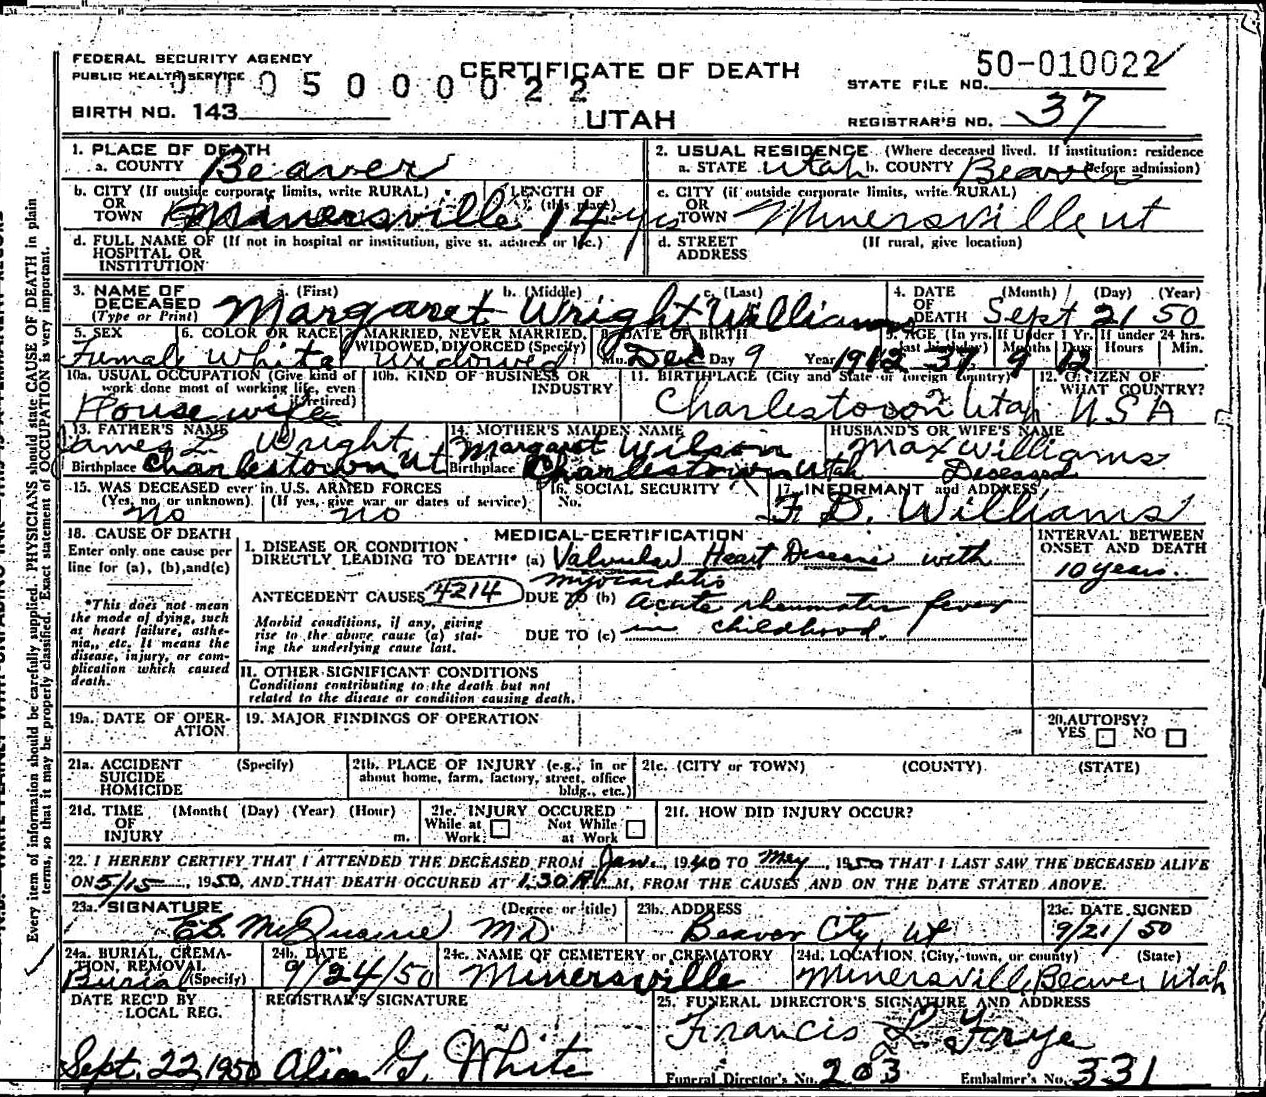 FEDERAL SECURITY AGENCY
PUBLIC HEALTH SERVICE
CERTIFICATE OF DEATH
50-010022
STATE FILE NO.
0005000022
BIRTH NO. 143
UTAH
REGISTRAR'S NO. 37
1. PLACE OF DEATH
a. COUNTY Beaver
2. USUAL RESIDENCE (Where deceased lived. If institution: residence before admission)
a. STATE Utah b. COUNTY Beaver
b. CITY (If outside corporate limits, write RURAL) OR TOWN Minersville
LENGTH OF (this place) 14 yrs
c. CITY (if outside corporate limits, write RURAL) OR TOWN Minersville ut
d. FULL NAME OF (If not in hospital or institution, give st. address or loc.) HOSPITAL OR INSTITUTION
d. STREET ADDRESS (If rural, give location)
3. NAME OF DECEASED (Type or Print)
a. (First) b. (Middle) c. (Last)
Margaret Wright Williams
4. DATE OF DEATH (Month) (Day) (Year)
Sept 21 50
5. SEX Female
6. COLOR OR RACE White
7 MARRIED, NEVER MARRIED, WIDOWED, DIVORCED (Specify) Widowed
8. DATE OF BIRTH
Mo. Dec Day 9 Year 1912
9. AGE (In yrs. last birthday) 37
If Under 1 Yr. Months 9 Days 12
If under 24 hrs. Hours Min.
10a. USUAL OCCUPATION (Give kind of work done most of working life, even if retired)
House wife
10b. KIND OF BUSINESS OR INDUSTRY
11. BIRTHPLACE (City and State or foreign Country)
Charlestown Utah
12. CITIZEN OF WHAT COUNTRY?
USA
13. FATHER'S NAME
James L. Wright
Birthplace Charlestown Ut
14. MOTHER'S MAIDEN NAME
Margaret Wilson
Birthplace Charlestown Utah
HUSBAND'S OR WIFE'S NAME
Max Williams
Deceased
15. WAS DECEASED ever in U.S. ARMED FORCES
(Yes, no, or unknown) (If yes, give war or dates of service)
no no
16. SOCIAL SECURITY No.
17. INFORMANT and ADDRESS
F. D. Williams
18. CAUSE OF DEATH
Enter only one cause per line for (a), (b), and (c)
*This does not mean the mode of dying, such as heart failure, asthenia, etc. It means the disease, injury, or complication which caused death.
MEDICAL CERTIFICATION
INTERVAL BETWEEN ONSET AND DEATH
10 years.
I. DISEASE OR CONDITION DIRECTLY LEADING TO DEATH* (a) Valvular Heart Disease with myocarditis
ANTECEDENT CAUSES 4214 DUE TO (b) Acute rheumatic fever
Morbid conditions, if any, giving rise to the above cause (a) stating the underlying cause last.
DUE TO (c) in childhood.
II. OTHER SIGNIFICANT CONDITIONS
Conditions contributing to the death but not related to the disease or condition causing death.
19a. DATE OF OPERATION
19. MAJOR FINDINGS OF OPERATION
20. AUTOPSY? YES NO
21a. ACCIDENT SUICIDE HOMICIDE (Specify)
21b. PLACE OF INJURY (e.g., in or about home, farm, factory, street, office bldg., etc.)
21c. (CITY or TOWN) (COUNTY) (STATE)
21d. TIME OF INJURY (Month) (Day) (Year) (Hour) m.
21e. INJURY OCCURED
While at Work Not While at Work
21f. HOW DID INJURY OCCUR?
22. I HEREBY CERTIFY THAT I ATTENDED THE DECEASED FROM Jan., 1940 TO May, 1950 THAT I LAST SAW THE DECEASED ALIVE
ON 5/15, 1950, AND THAT DEATH OCCURED AT 1:30 M, FROM THE CAUSES AND ON THE DATE STATED ABOVE.
23a. SIGNATURE (Degree or title)
MD
23b. ADDRESS
Beaver City, Ut
23c. DATE SIGNED
9/21/50
24a. BURIAL, CREMATION, REMOVAL (Specify)
Burial
24b. DATE
9/24/50
24c. NAME OF CEMETERY or CREMATORY
Minersville
24d. LOCATION (City, town, or county) (State)
Minersville Beaver Utah
DATE REC'D BY LOCAL REG.
Sept. 22, 1950
REGISTRAR'S SIGNATURE
Alice G. White
25. FUNERAL DIRECTOR'S SIGNATURE AND ADDRESS
Francis L Frye
Funeral Director's No. 203 Embalmer's No. 331
Every item of information should be carefully supplied. PHYSICIANS should state CAUSE OF DEATH in plain
terms, so that it may be properly classified. Exact statement of OCCUPATION is very important.